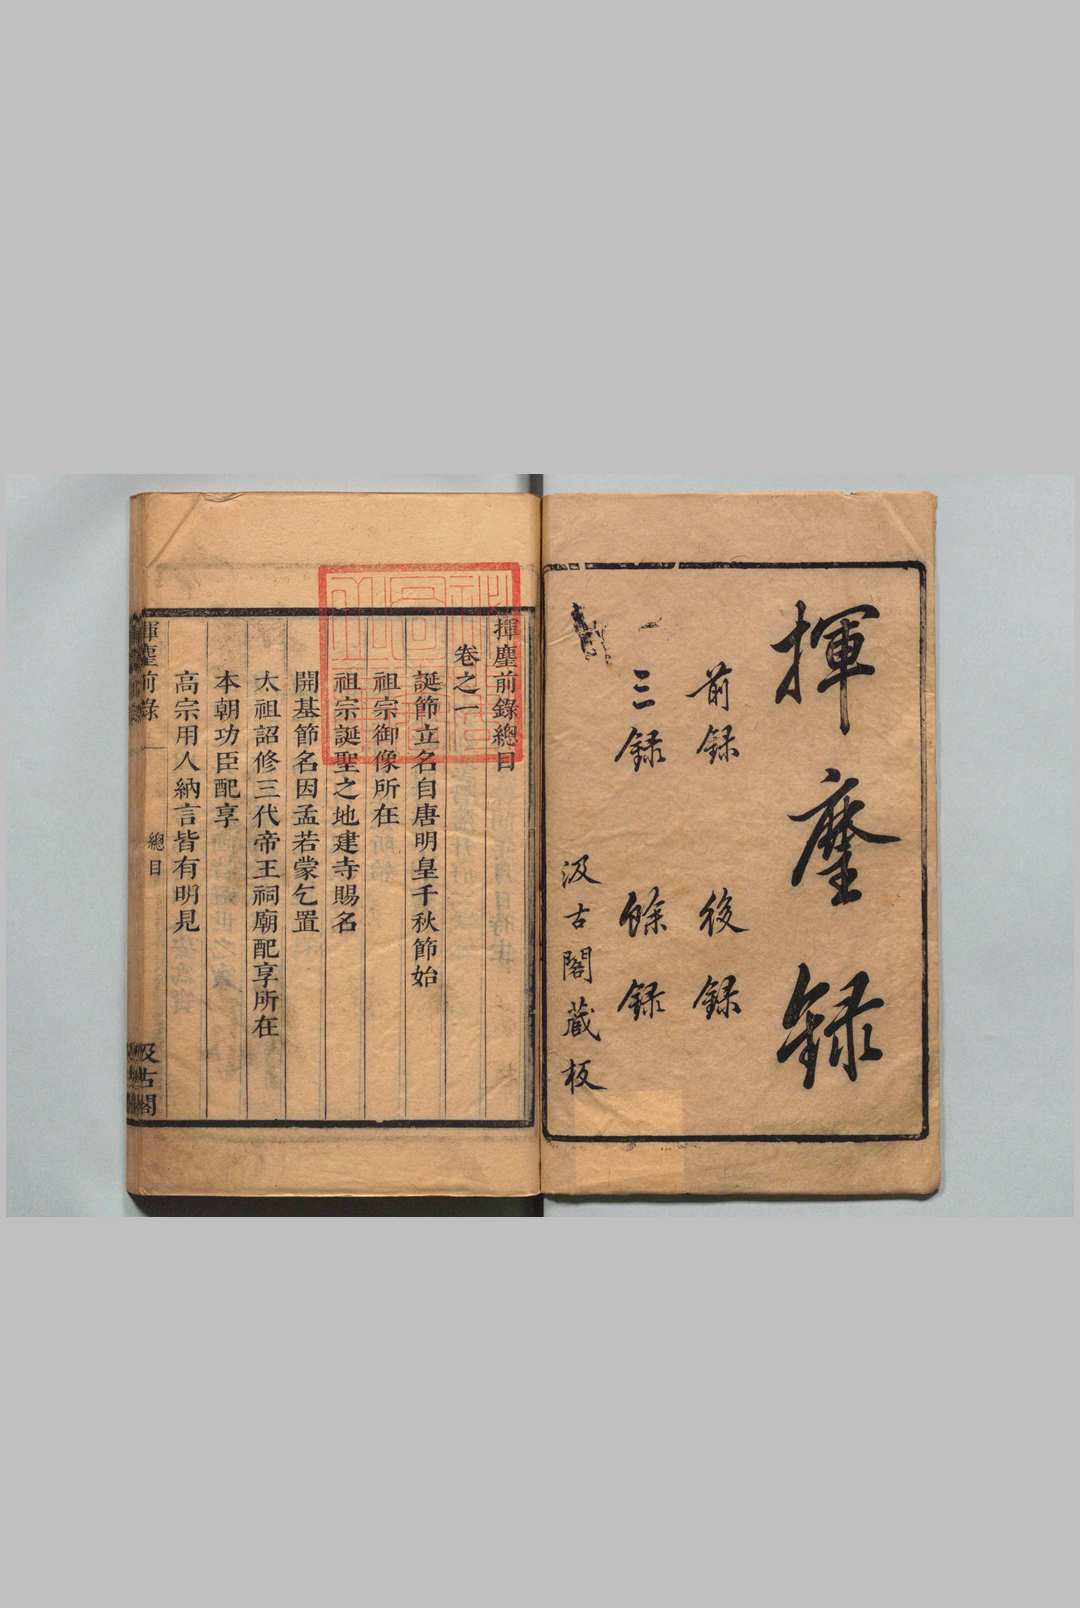 揮麈錄
前錄 後錄
三錄 餘錄
汲古閣藏板
揮麈前錄總目
卷之一
誕節立名自唐明皇千秋節始
祖宗御像所在
祖宗誕聖之地建寺賜名
開基節名因孟若蒙乞置
太祖詔修三代帝王祠廟配享所在
本朝功臣配享
高宗用人納言皆有明見
揮麈前錄 總目 汲古閣